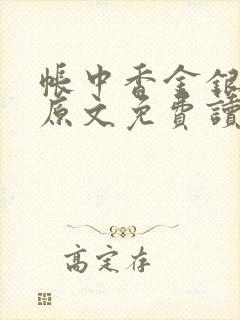 帳中香金銀
原文免費讀
高定存